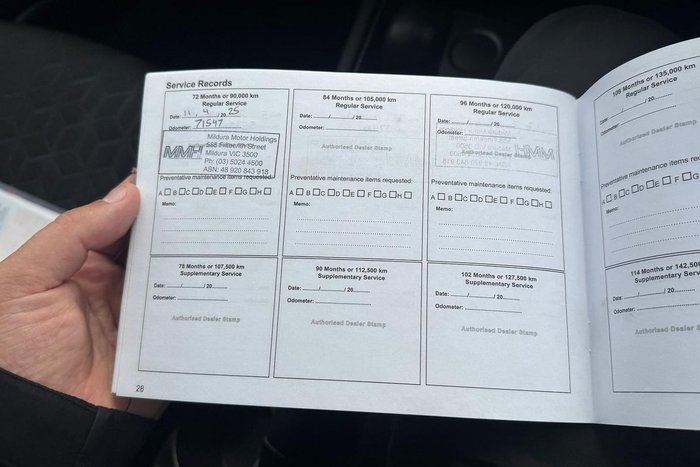 Service Records
72 Months or 90,000 km
Regular Service
Date: 11 / 4 / 20 25
Odometer: 71547
MMH
Mildura Motor Holdings
Fifteenth Street
Mildura VIC 3500
Ph: (03) 5024 4500
ABN: 48 920 843 918
Preventative maintenance items requested:
A B C D E F G H
Memo:
84 Months or 105,000 km
Regular Service
Date: / / 20
Odometer:
Authorised Dealer Stamp
Preventative maintenance items requested:
A B C D E F G H
Memo:
96 Months or 120,000 km
Regular Service
Date: / / 20
Odometer:
Authorised Dealer Stamp
Preventative maintenance items requested:
A B C D E F G H
Memo:
78 Months or 107,500 km
Supplementary Service
Date: / / 20
Odometer:
Authorised Dealer Stamp
90 Months or 112,500 km
Supplementary Service
Date: / / 20
Odometer:
Authorised Dealer Stamp
102 Months or 127,500 km
Supplementary Service
Date: / / 20
Odometer:
Authorised Dealer Stamp
28
Months or 135,000 km
Regular Service
Date: / / 20
Odometer:
Authorised Dealer Stamp
Preventative maintenance items
A B C D E
Memo:
114 Months or 142,50
Supplementary Serv
Date: / / 20
Odometer:
Authorised Dealer Stamp